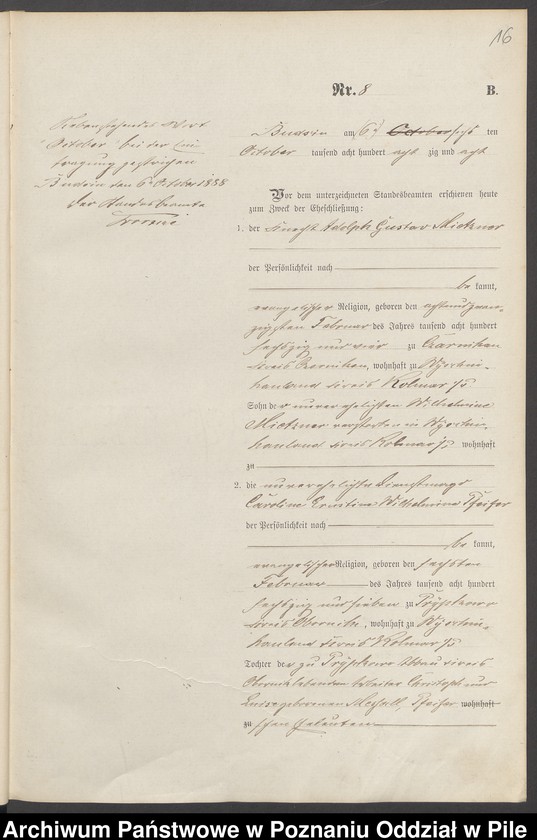 16
Nr. 8
B.
Nebenstehendes Wort
"October" bei der Ein-
tragung gestrichen
Budsin den 6 October 1888
Der Standesbeamte
Budsin am 6. October sechs ten
October tausend acht hundert acht zig und acht
Vor dem unterzeichneten Standesbeamten erschienen heute
zum Zweck der Eheschließung:
1. der Knecht Adolph Gustav Mietzner
der Persönlichkeit nach
be kannt,
evangelischer Religion, geboren den achtundzwan-
zigsten Februar des Jahres tausend acht hundert
sechszig und vier zu Czarnikau
Kreis Czarnikau, wohnhaft zu
hauland Kreis Kolmar i/P
Sohn der unverehelichten Wilhelmine
Mietzner verstorben in
hauland Kreis Kolmar i/P wohnhaft
zu
2. die unverehelichte Dienstmagd
Caroline Ernstine Wilhelmine Pfeifer
der Persönlichkeit nach
be kannt,
evangelischer Religion, geboren den sechsten
Februar des Jahres tausend acht hundert
sechszig und sieben zu
Kreis Obornik, wohnhaft zu
hauland Kreis Kolmar i/P
Tochter der zu Abbau Kreis
Obornik lebenden Arbeiter Christoph und
geborenen Pfeifer wohnhaft
zu schen Eheleuten
Archiwum Państwowe w Poznaniu Oddział w Pile